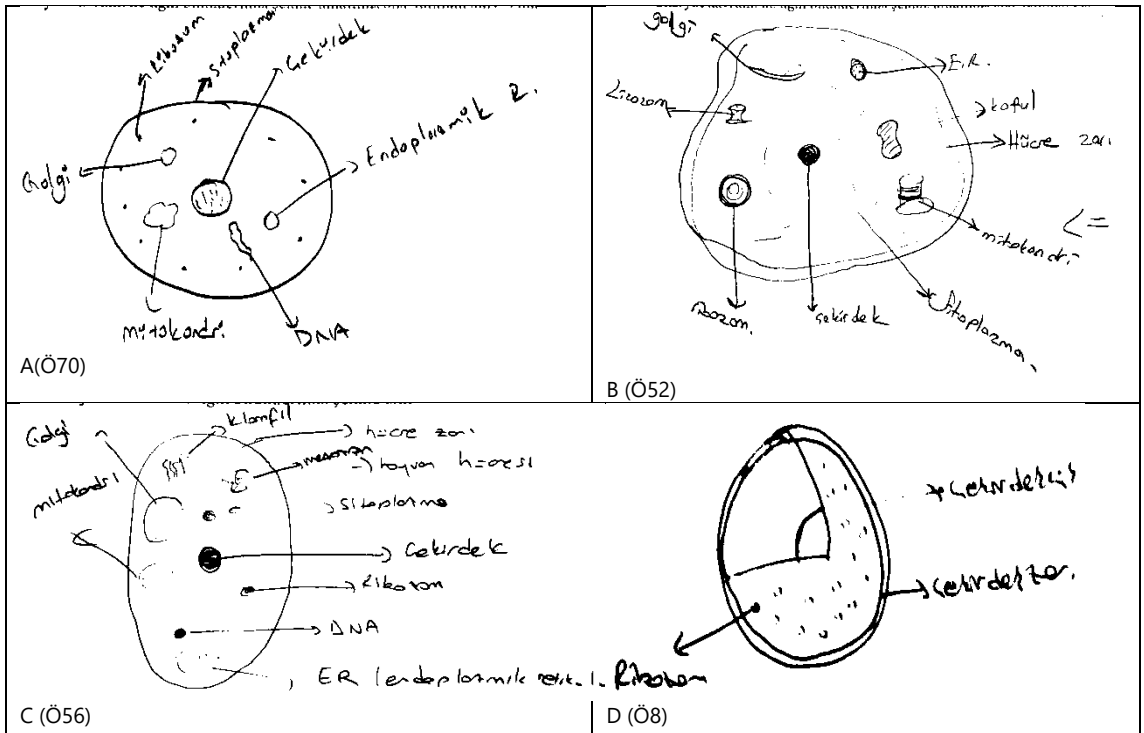 Ribozum
Sitoplazma
Çekirdek
Golgi
Endoplazmik R.
Mitokondri
DNA
A(Ö70)
golgi
E.R.
Lizozom
koful
Hücre zarı
mitokondri
Ribozom
Çekirdek
Sitoplazma
B (Ö52)
Golgi
Klorofil
hücre zarı
hayvan hücresi
mitokondri
sitoplazma
Çekirdek
Ribozom
DNA
ER (endoplazmik
C (Ö56)
Ribozom
D (Ö8)